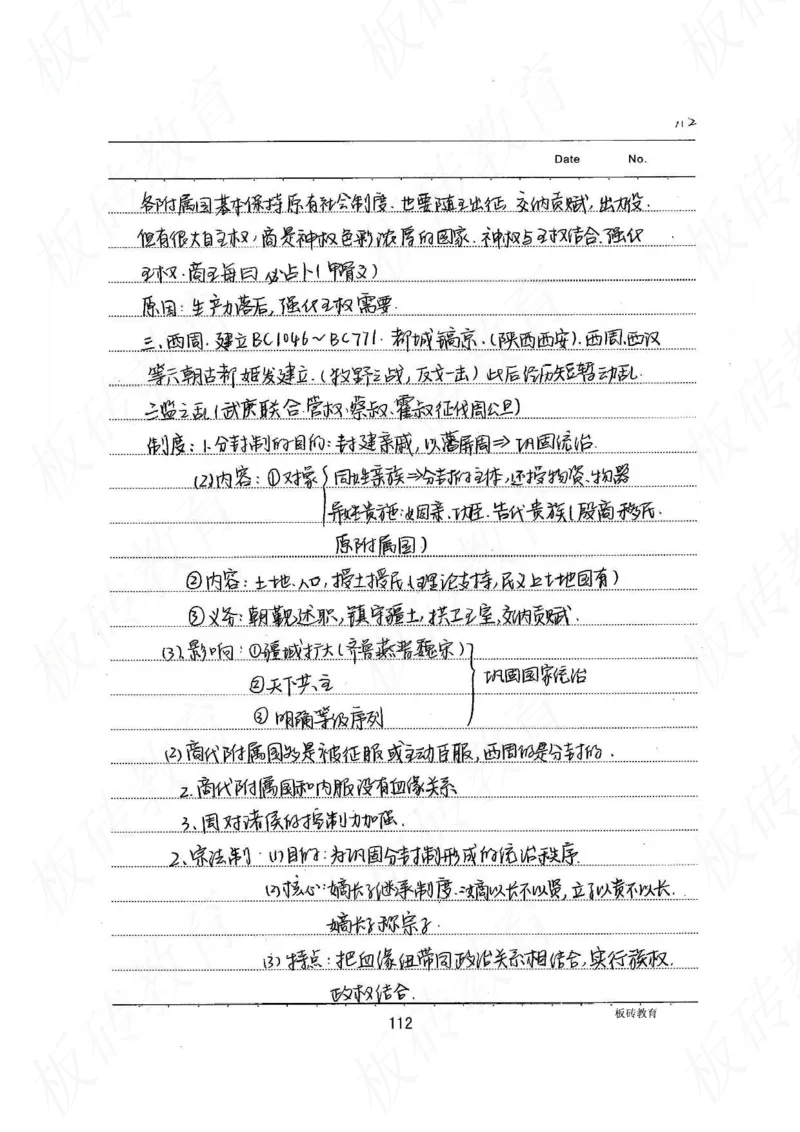 112
Date No.
各附属国基本保持原有社会制度.也要随王出征,交纳贡赋,出力役.
但有很大自主权,商是神权色彩浓厚的国家.神权与王权结合.强化
王权.商王每日必占卜(甲骨文)
原因:生产力落后,强化王权需要.
三、西周.建立BC1046~BC771.都城镐京.(陕西西安).西周.西汉
等六朝古都 姬发建立.(牧野之战,反戈一击)此后经历短暂动乱.
三监之乱(武庚联合.管叔.蔡叔、霍叔征伐周公旦)
制度:1.分封制的目的:封建亲戚,以藩屏周⇒巩固统治.
(2)内容:①对象{同姓亲族⇒分封的主体,还授物资、物器
异姓贵族:如因亲、功臣.古代贵族(殷商移民.
原附属国)
②内容:土地、人口,授土授民(理论支持,民义上土地国有)
③义务:朝觐述职,镇守疆土,拱卫王室,交纳贡赋.
(3).影响:①疆域扩大(齐鲁燕晋魏宋)
②天下共主 巩固国家统治
③明确等级序列
(2)商代附属国多是被征服或主动臣服,西周的是分封的.
2.商代附属国和内服没有血缘关系
3、周对诸侯的控制力加强.
2、宗法制.(1)目的:为巩固分封制形成的统治秩序.
(2)核心:嫡长子继承制度.立嫡以长不以贤,立子以贵不以长.
嫡长子称宗子.
(3)特点:把血缘纽带同政治关系相结合,实行族权.
政权结合.
板砖教育
112